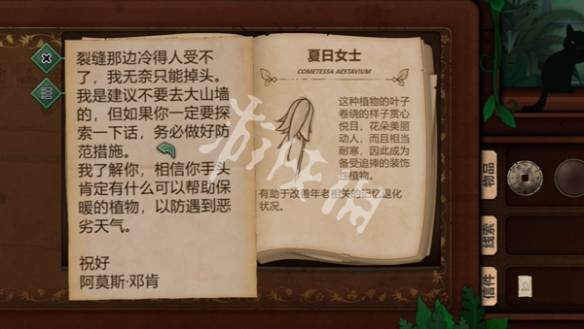 裂缝那边冷得人受不
了，我无奈只能掉头。
我是建议不要去大山墙
的，但如果你一定要探
索一下话，务必做好防
范措施。
我了解你，相信你手头
肯定有什么可以帮助保
暖的植物，以防遇到恶
劣天气。
祝好
阿莫斯·邓肯
夏日女士
COMETESSA AESTAVIUM
这种植物的叶子
卷绕的样子赏心
悦目，花朵美丽
动人，而且相当
耐寒，因此成为
备受追捧的装饰
性植物。
有助于改善年老相关的记忆退化
状况。
物品
线索
信件
游民网